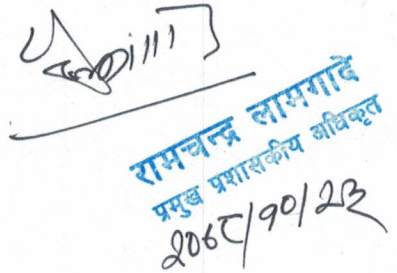 रामचन्द्र लामगादे
प्रमुख प्रशासकीय अधिकृत
२०७८/१०/२३